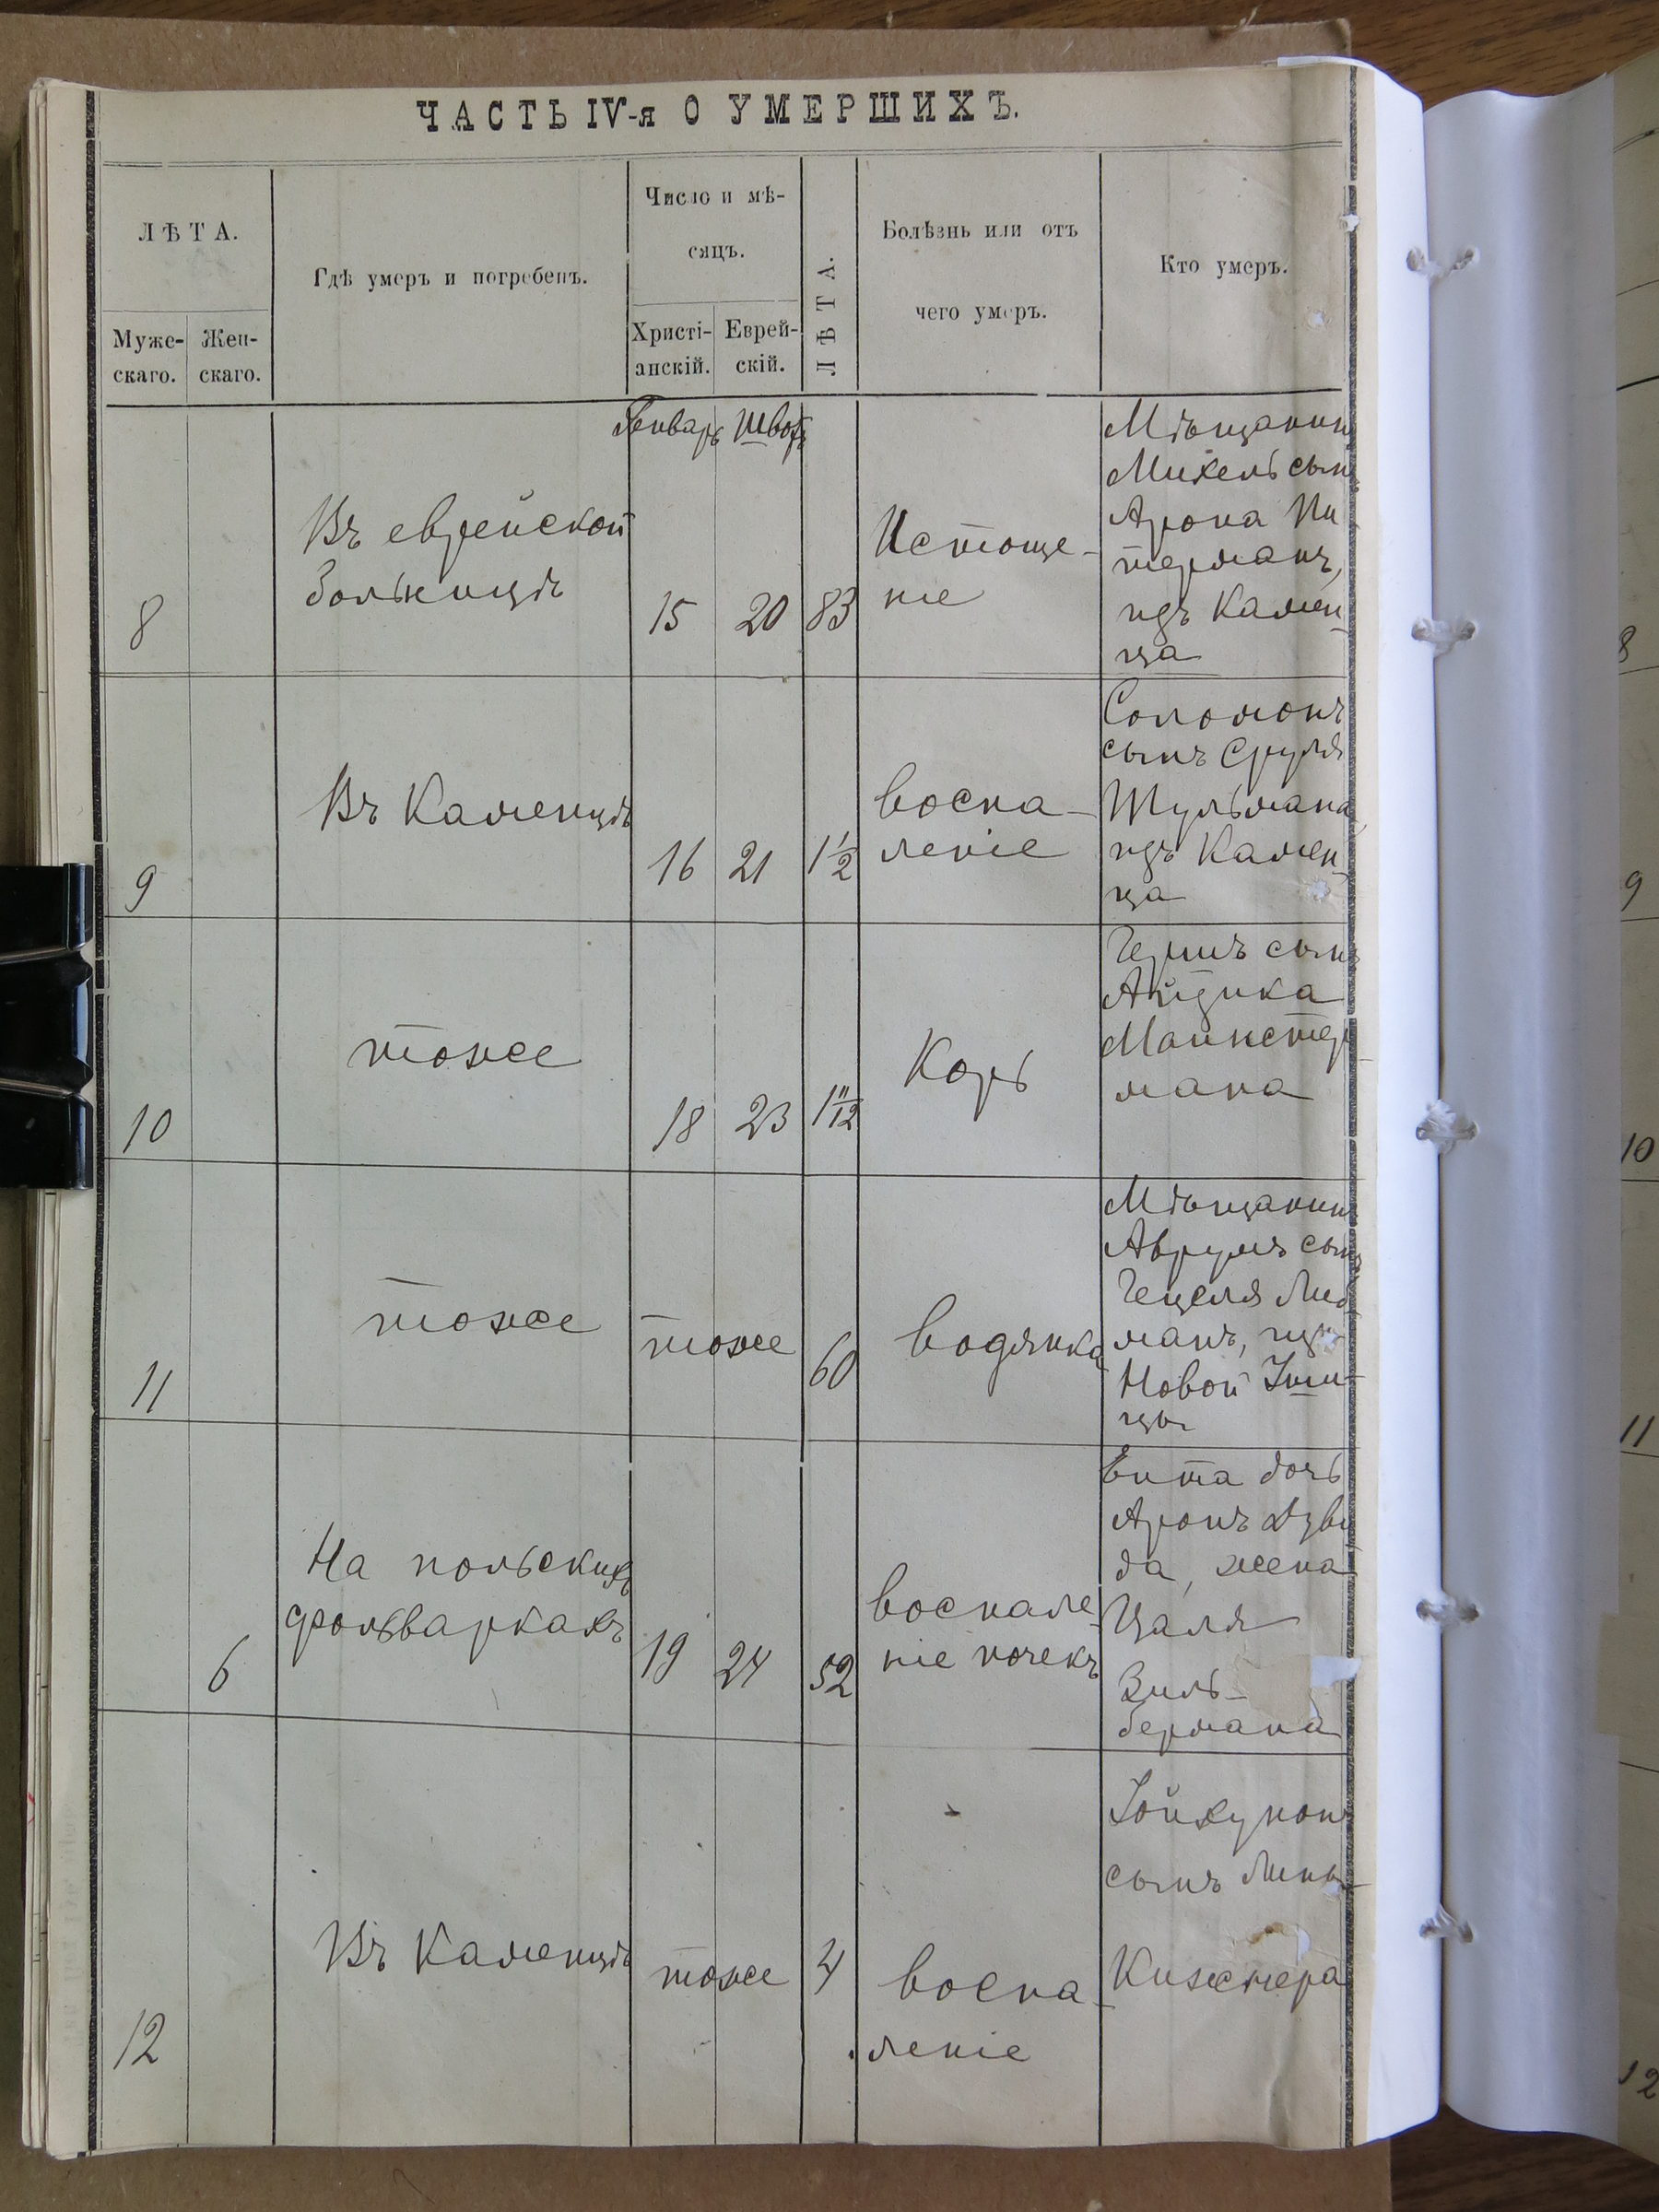 ЧАСТЬ IV-я О УМЕРШИХЪ.
ЛѢТА.
Муже-
скаго.
Жен-
скаго.
Гдѣ умеръ и погребенъ.
Число и мѣ-
сяцъ.
Христі-
анскій.
Еврей-
скій.
ЛѢТА.
Болѣзнь или отъ
чего умеръ.
Кто умеръ.
Январь Шватъ
8
Въ еврейской
больницѣ
15 20 83
Истоще-
ніе
Мѣщанинъ
Михель сынъ
Арона Пи
терманъ,
изъ Камен-
ца
9
Въ Каменцѣ
16 21 1 1/2
воспа-
леніе
Соломонъ
сынъ Сруля
Шульмана,
изъ Камен-
ца
10
тоже
18 23 1 11/12
Корь
Гершъ сынъ
Айзика
Майстер-
мана
11
тоже
тоже
60
водянка
Мѣщанинъ
Аврумъ сынъ
Гецеля
манъ, изъ
Новой Уши-
цы
6
На польскихъ
фольваркахъ
19 24 52
воспале-
ніе почекъ
Ента дочь
Аронъ Дуви
да, жена
Цаля
Зиль-
бермана
12
Въ Каменцѣ
тоже
4
воспа-
леніе
сынъ
Кижнера
8
9
10
11
12